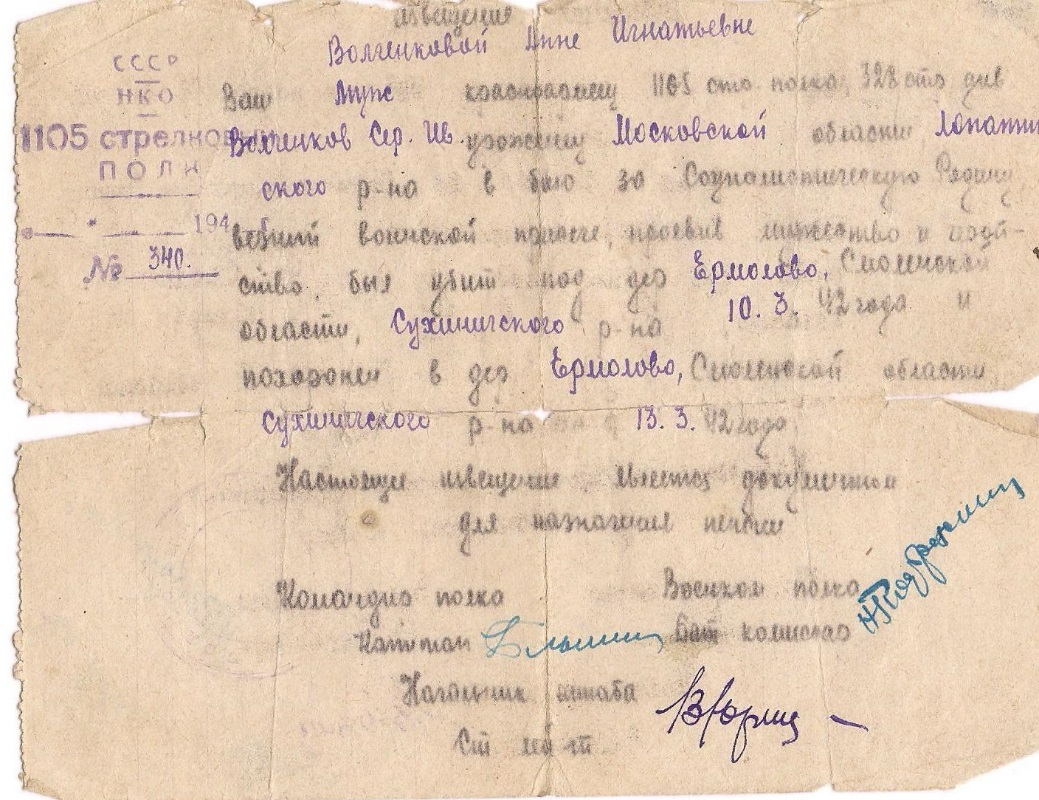 извещение
Волченковой Анне Игнатьевне
СССР
НКО
1105 стрелковый
ПОЛК
194
№ 340.
Ваш муж красноармеец 1105 стр полка, 328 стр див
Волченков Сер. Ив. урожениц Московской области Лопатин
ского р-на в бою за Социалистическую Родину,
воинской присяге, проявив мужество и герой-
ство был убит под дер Ермолово, Смоленской
области, Сухиничского р-на 10.3.42 года и
похоронен в дер Ермолово, Смоленской области
Сухиничского р-на 13.3.42 года
Настоящее извещение является документом
для назначения пенсии
Командир полка Военком полка
Капитан Бат комиссар
Начальник штаба
Ст лейт